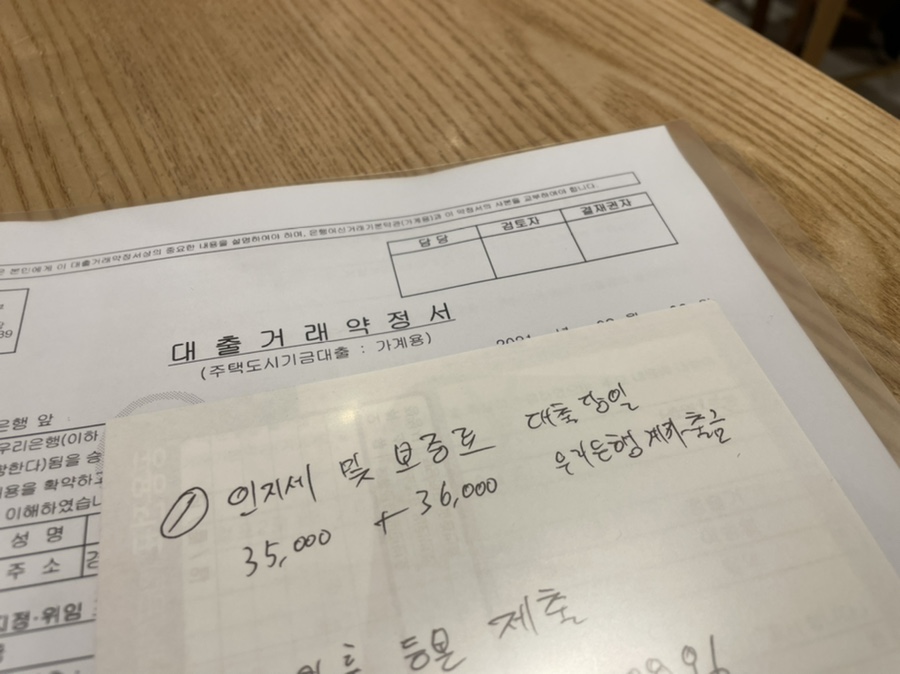 본인에게 이 대출거래약정서상의 중요한 내용을 설명하여야 하며, 은행여신거래기본약관(가계용)과 이 약정서의 사본을 교부하여야 합니다.
담 당 검토자 결재권자
대 출 거 래 약 정 서
(주택도시기금대출 : 가계용)
은행 앞
우리은행(이하
이해하였습니
성 명
주 소
지정·위임
① 인지세 및 보증료 대출 당일
35,000 + 36,000 우리은행 계좌출금
등본 제출